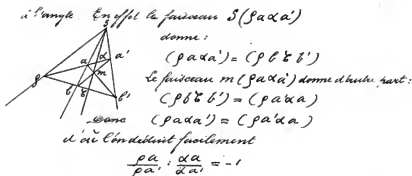 à l'angle En effet le faisceau S(ραdα')
donne:
(ρadα') = (ρb'b b')
Le faisceau m(ρadα') donne d'autre part:
(ρb'b b') = (ρa'da)
donc (ρada') = (ρa'da)
d'où l'on déduit facilement
ρa/ρa' : αa/αa' = -1
S
a
α
a'
m
ρ
b
b'